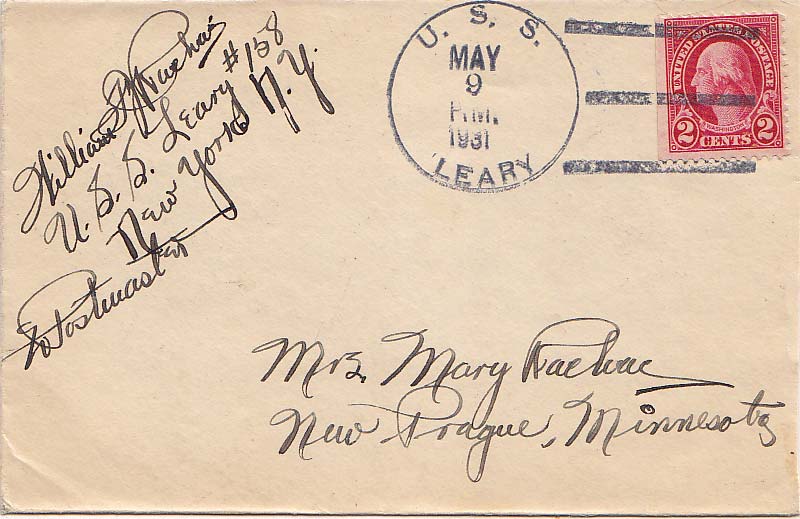 William
U.S.S. Leary #158
New York N.Y.
c/o Postmaster
U. S. S.
MAY
9
P.M.
1931
LEARY
UNITED STATES POSTAGE
WASHINGTON
2 CENTS 2
Mrs. Mary
New Prague, Minnesota